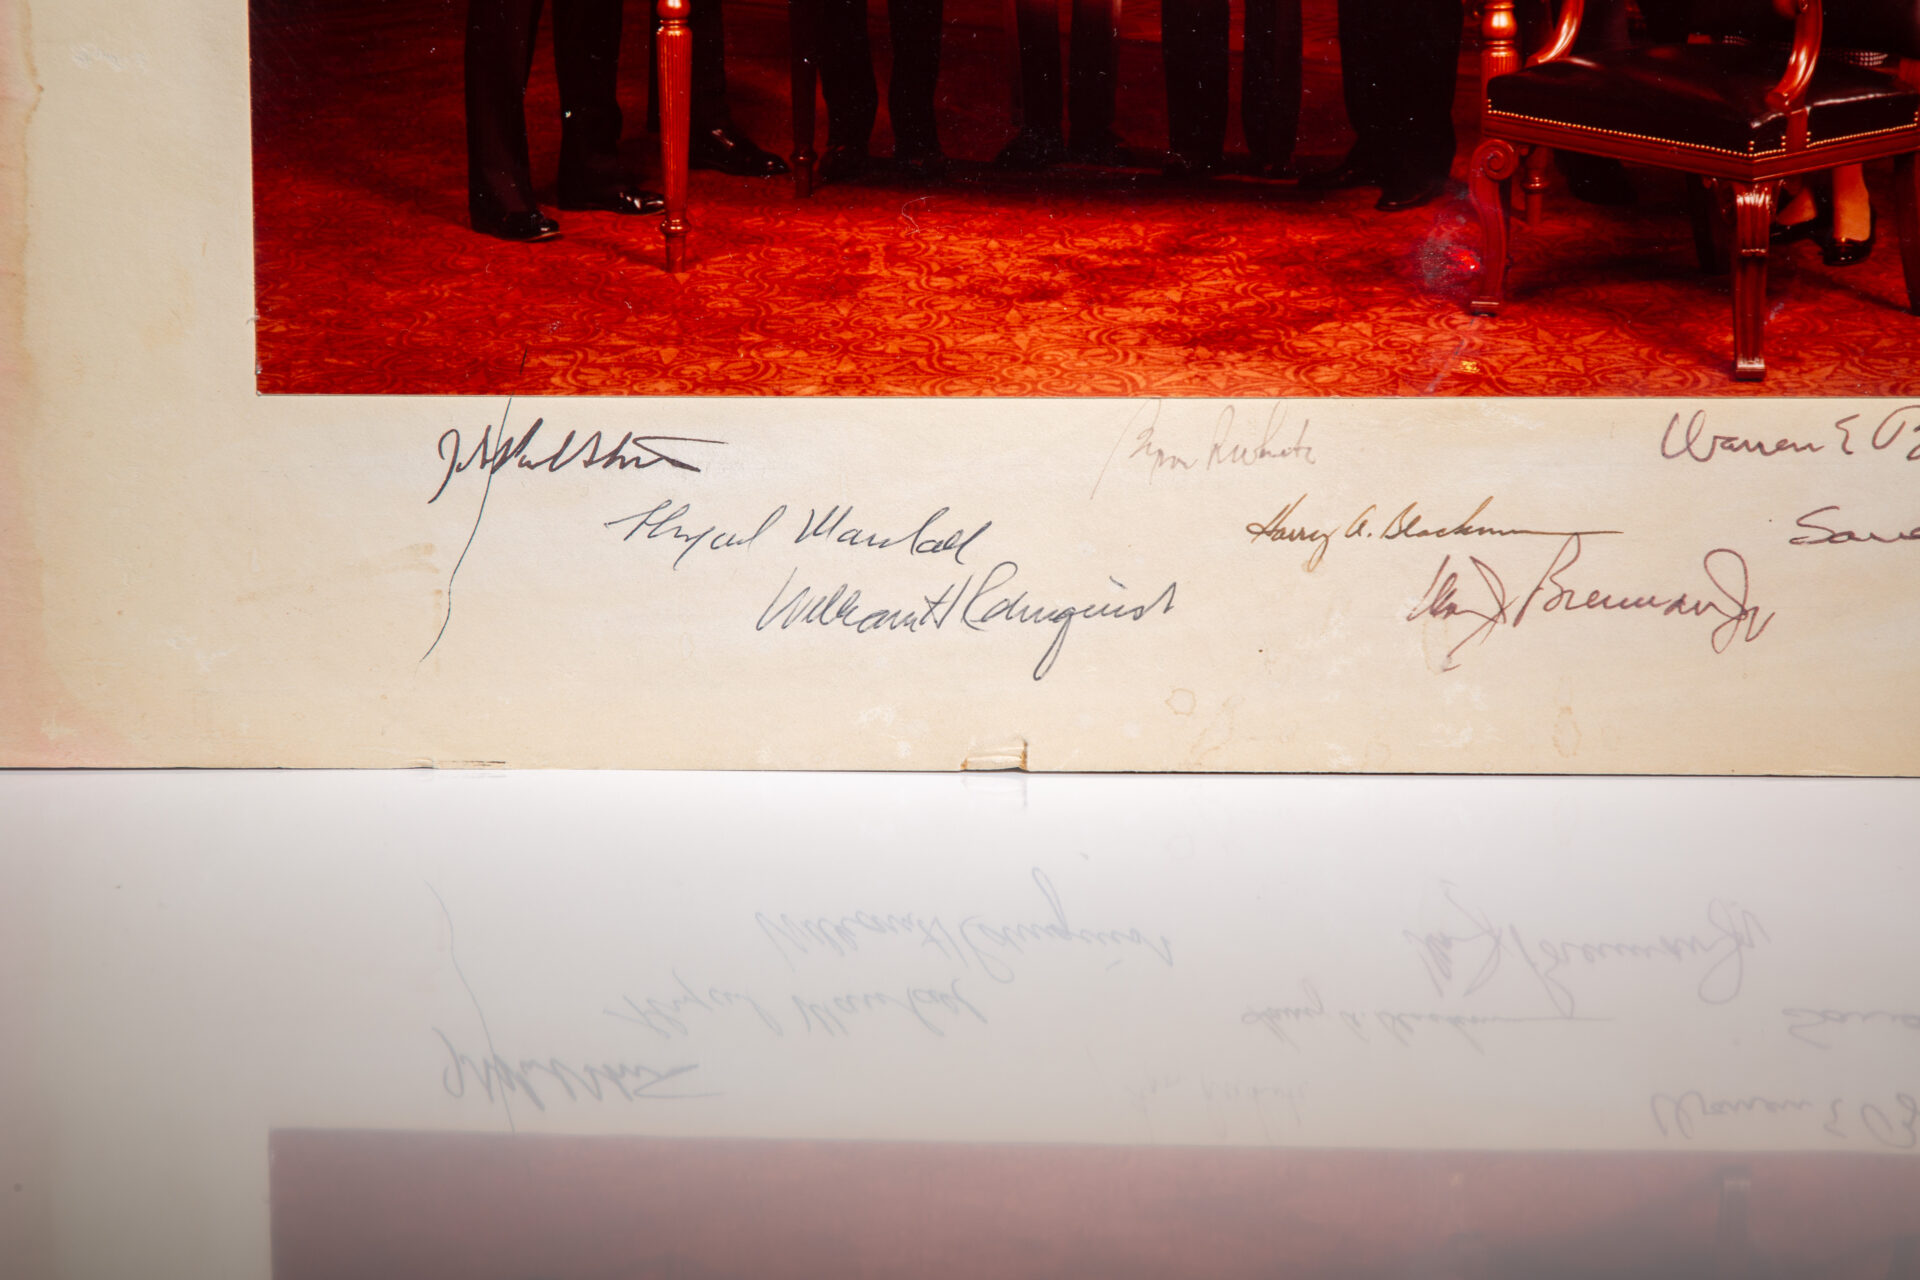 John Paul Stevens Byron R White Warren E B
Thurgood Marshall Harry A. Blackmun Sand
William H Rehnquist Wm J Brennan Jr